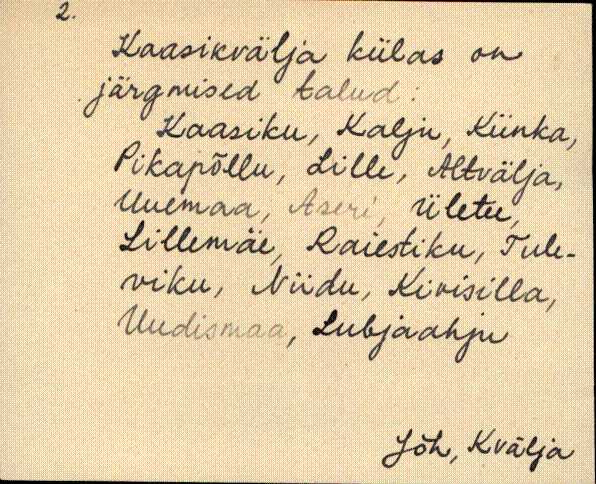 2.
Kaasikvälja külas on
järgmised talud:
Kaasiku, Kalju, Künka,
Pikapõllu, Lille, Altvälja,
Uuemaa, Aseri, Ületee,
Lillemäe, Raiestiku, Tule-
viku, Niidu, Kivisilla,
Uudismaa, Lubjaahju
Jõh, Kvälja